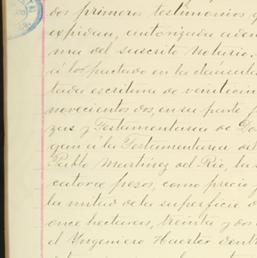 dos primeros testimonios q
expidan, autorizada adem
ma del suscrito Notario.
á lo pactado en la cláusula
tada escritura de veintiun
novecientos dos, en su parte
zas y Testamentaria de Do
gan á la Testamentaria del
Pablo Martínez del Rio, la
catorce pesos, como precio
la mitad de la superficie d
once hectaras, treinta y dos
el Ingeniero Huerter dentr